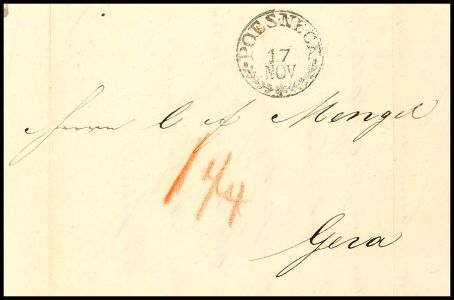 POESNECK
17
NOV
Herrn C A Mengel
1 1/4
Gera